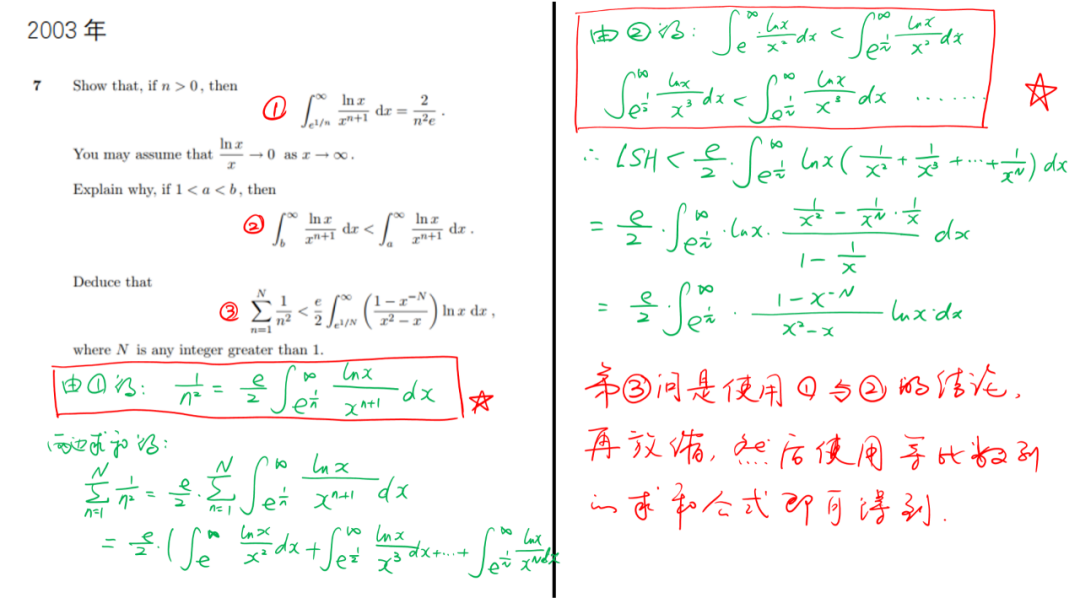 2003 年
7 Show that, if n > 0, then
① ∫_{e^{1/n}}^{∞} ln x / x^{n+1} dx = 2 / n²e .
You may assume that ln x / x → 0 as x → ∞.
Explain why, if 1 < a < b, then
② ∫_b^∞ ln x / x^{n+1} dx < ∫_a^∞ ln x / x^{n+1} dx .
Deduce that
③ ∑_{n=1}^{N} 1/n² < e/2 ∫_{e^{1/N}}^{∞} ( (1 − x^{−N}) / (x² − x) ) ln x dx ,
where N is any integer greater than 1.
由①得: 1/n² = e/2 ∫_{e^{1/n}}^{∞} lnx / x^{n+1} dx
两边求和得:
∑_{n=1}^{N} 1/n² = e/2 · ∑_{n=1}^{N} ∫_{e^{1/n}}^{∞} lnx / x^{n+1} dx
= e/2 · ( ∫_e^∞ lnx / x² dx + ∫_{e^{1/2}}^{∞} lnx / x³ dx + ··· + ∫_{e^{1/N}}^{∞} lnx / x^N dx
由②得: ∫_e^∞ lnx / x² dx < ∫_{e^{1/N}}^{∞} lnx / x² dx
∫_{e^{1/2}}^{∞} lnx / x³ dx < ∫_{e^{1/N}}^{∞} lnx / x³ dx ········
∴ LSH < e/2 · ∫_{e^{1/N}}^{∞} lnx ( 1/x² + 1/x³ + ··· + 1/x^N ) dx
= e/2 · ∫_{e^{1/N}}^{∞} · lnx · (1/x² − 1/x^N · 1/x) / (1 − 1/x) dx
= e/2 · ∫_{e^{1/N}}^{∞} · (1 − x^{−N}) / (x² − x) lnx·dx
第③问是使用①与②的结论,
再放缩, 然后使用等比数列
的求和公式即可得到.